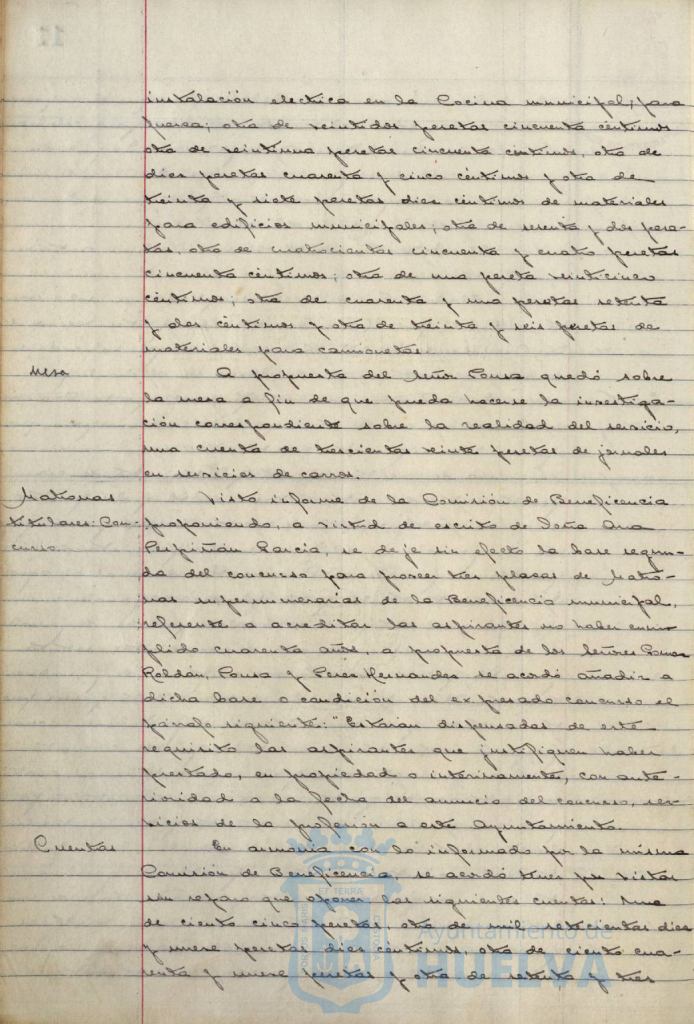 instalación electrica en la Cocina municipal, para
fuerza; otra de veintidos pesetas cincuenta céntimos
otra de veintiuna pesetas cincuenta céntimos, otra de
diez pesetas cuarenta y cinco céntimos y otra de
treinta y siete pesetas diez céntimos de materiales
para edificios municipales; otra de sesenta y dos pese-
tas, otra de cuatrocientas cincuenta y cuatro pesetas
cincuenta céntimos; otra de una peseta veinticinco
céntimos; otra de cuarenta y una pesetas setenta
y dos céntimos y otra de treinta y seis pesetas de
materiales para camionetas.
Mesa
A propuesta del Señor Ponsa quedó sobre
la mesa a fin de que pueda hacerse la investiga-
ción correspondiente sobre la realidad del servicio,
una cuenta de trescientas veinte pesetas de jornales
en servicios de carros.
Matronas
titulares: Con-
curso.
Visto informe de la Comisión de Beneficencia
proponiendo, a virtud de escrito de Doña Ana
Perpiñán García, se deje sin efecto la base segun-
da del concurso para proveer tres plazas de Matro-
nas supernumerarias de la Beneficencia municipal,
referente a acreditar las aspirantes no haber cum-
plido cuarenta años, a propuesta de los Señores
Roldán, Ponsa y Perez Hernandez se acordó añadir a
dicha base o condición del expresado concurso el
párrafo siguiente: "Estarán dispensadas de este
requisito las aspirantes que justifiquen haber
prestado, en propiedad o interinamente, con ante-
rioridad a la fecha del anuncio del concurso, ser-
vicios de la profesión a este Ayuntamiento.
Cuentas
En armonía con lo informado por la misma
Comisión de Beneficencia, se acordó tener por vistas
sin reparo que oponer las siguientes cuentas: Una
de ciento cinco pesetas, otra de mil setecientas diez
y nueve pesetas diez céntimos, otra de ciento cua-
renta y nueve pesetas y otra de setenta y tres
Ayuntamiento de
HUELVA